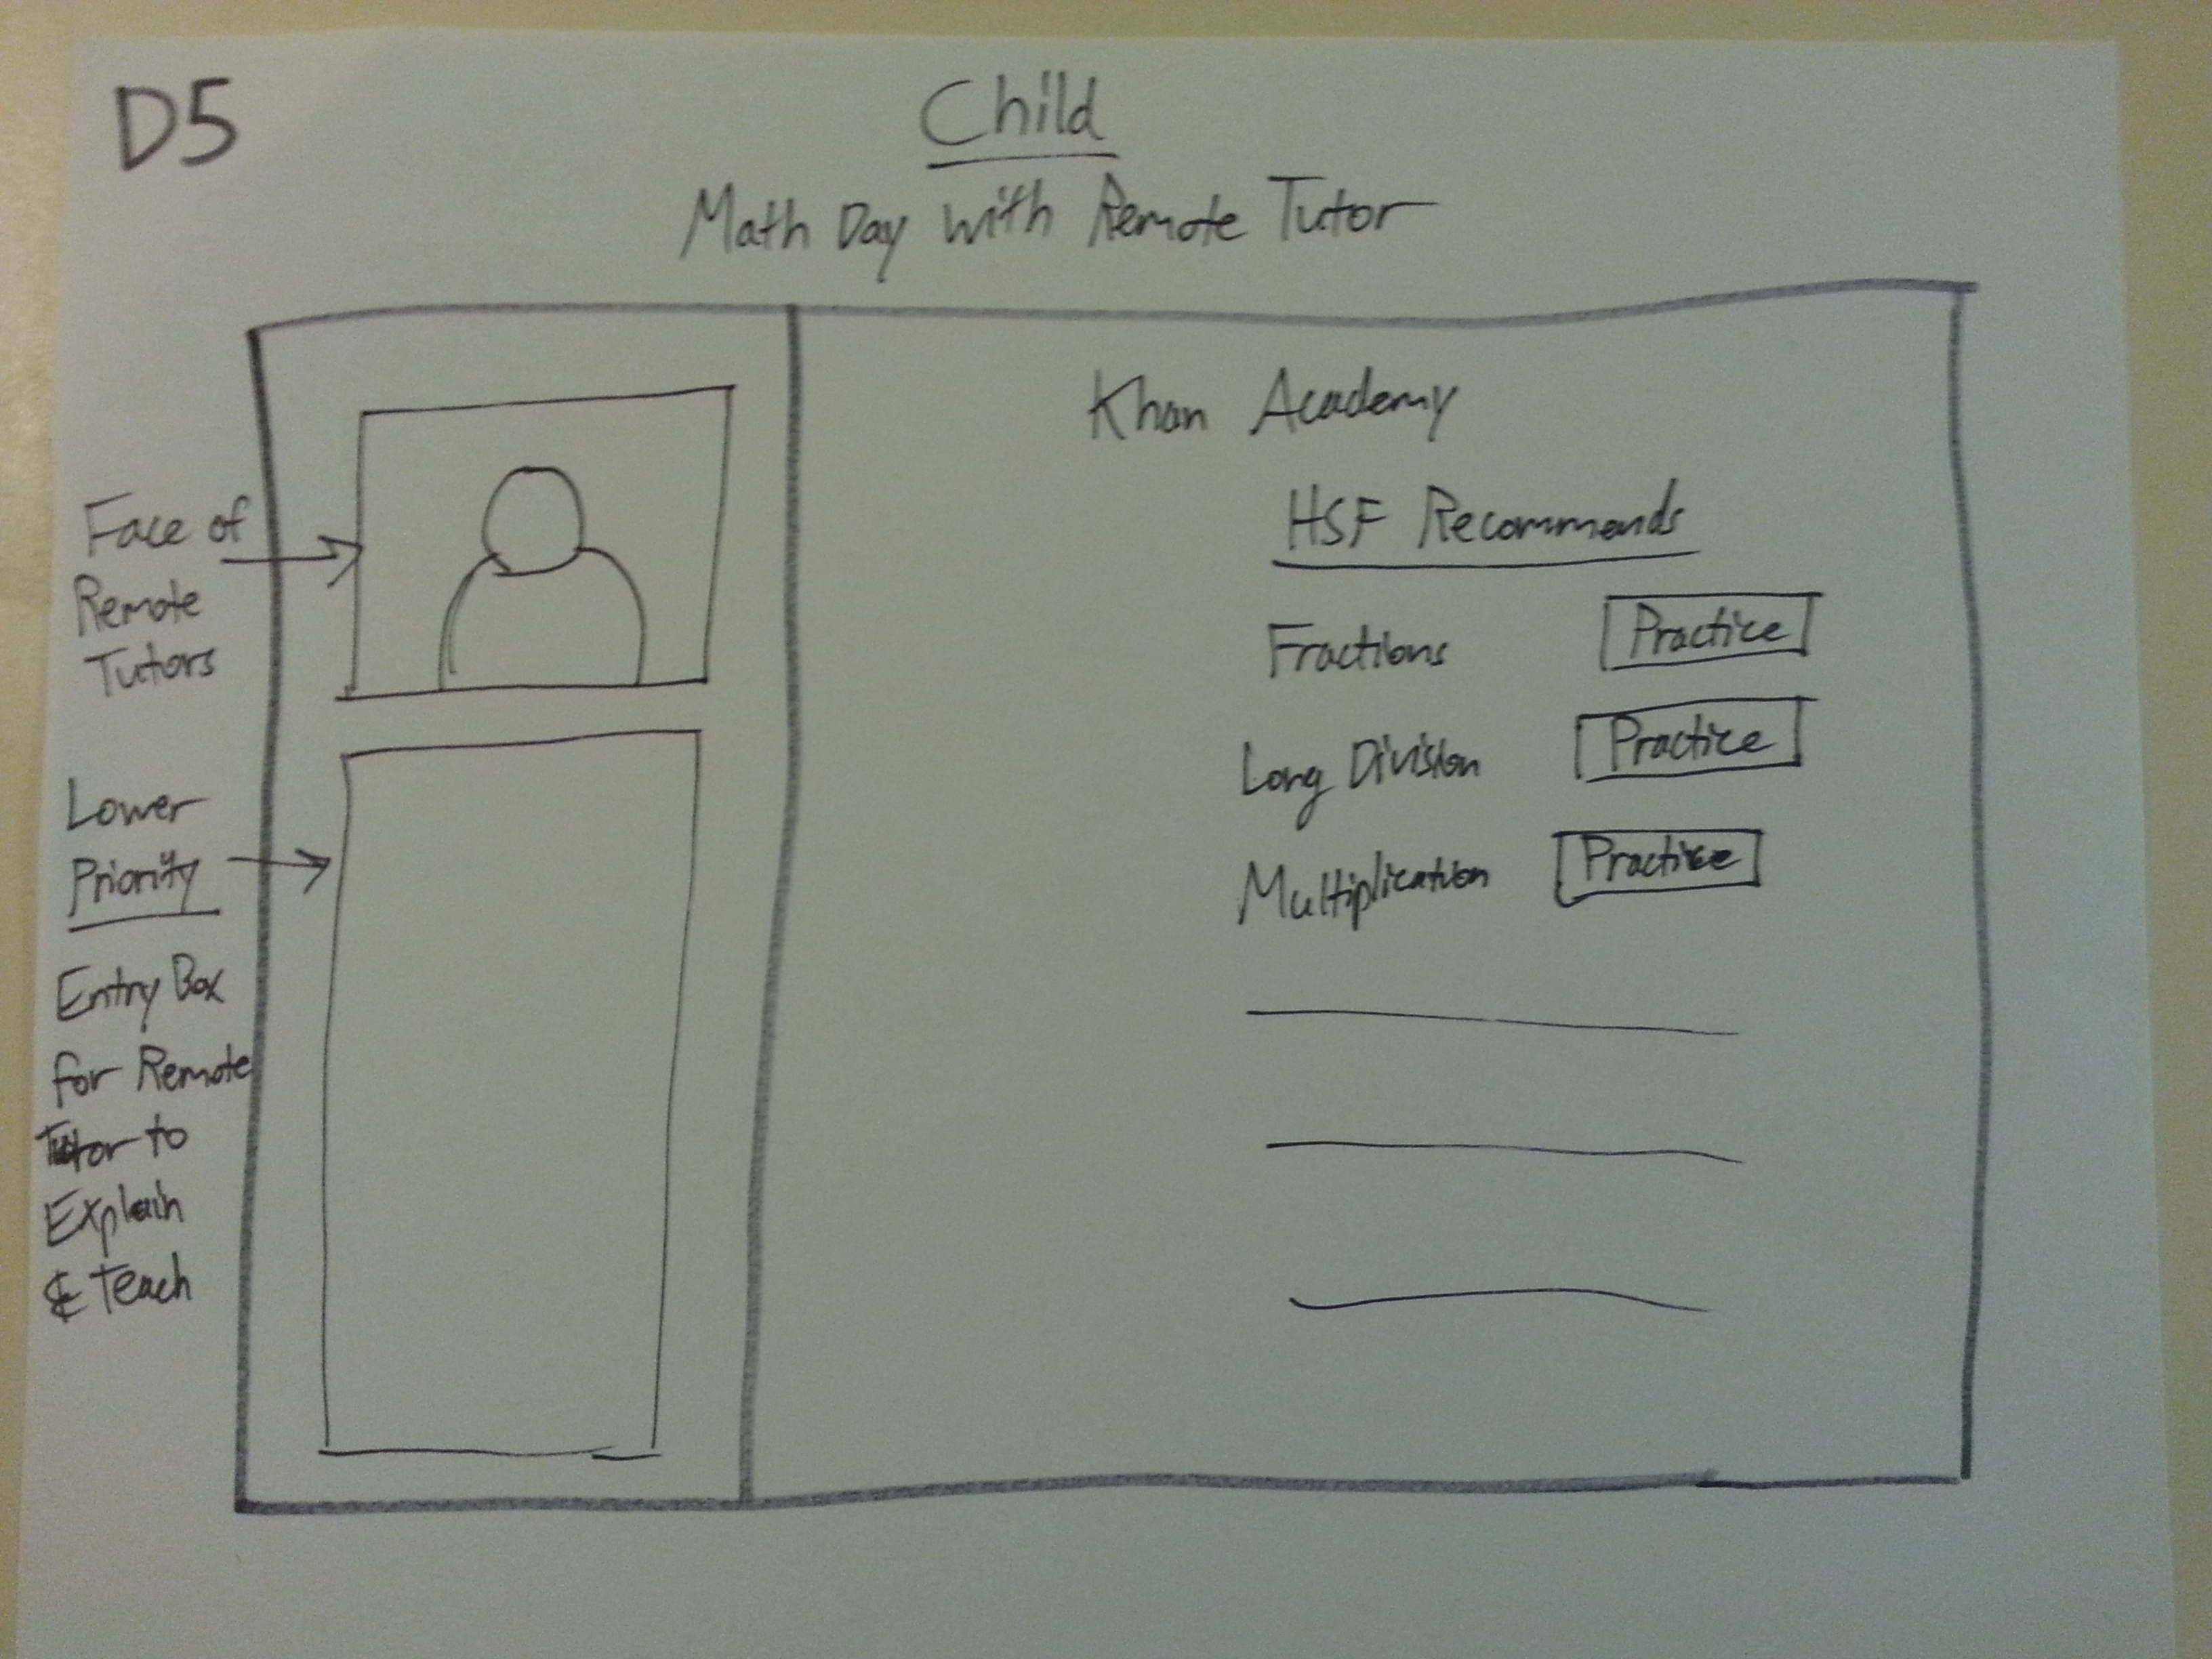 D5
Child
Math Day with Remote Tutor
Face of
Remote
Tutors
Lower
Priority
Entry Box
for Remote
Tutor to
Explain
& Teach
Khan Academy
HSF Recommends
Fractions Practice
Long Division Practice
Multiplication Practice